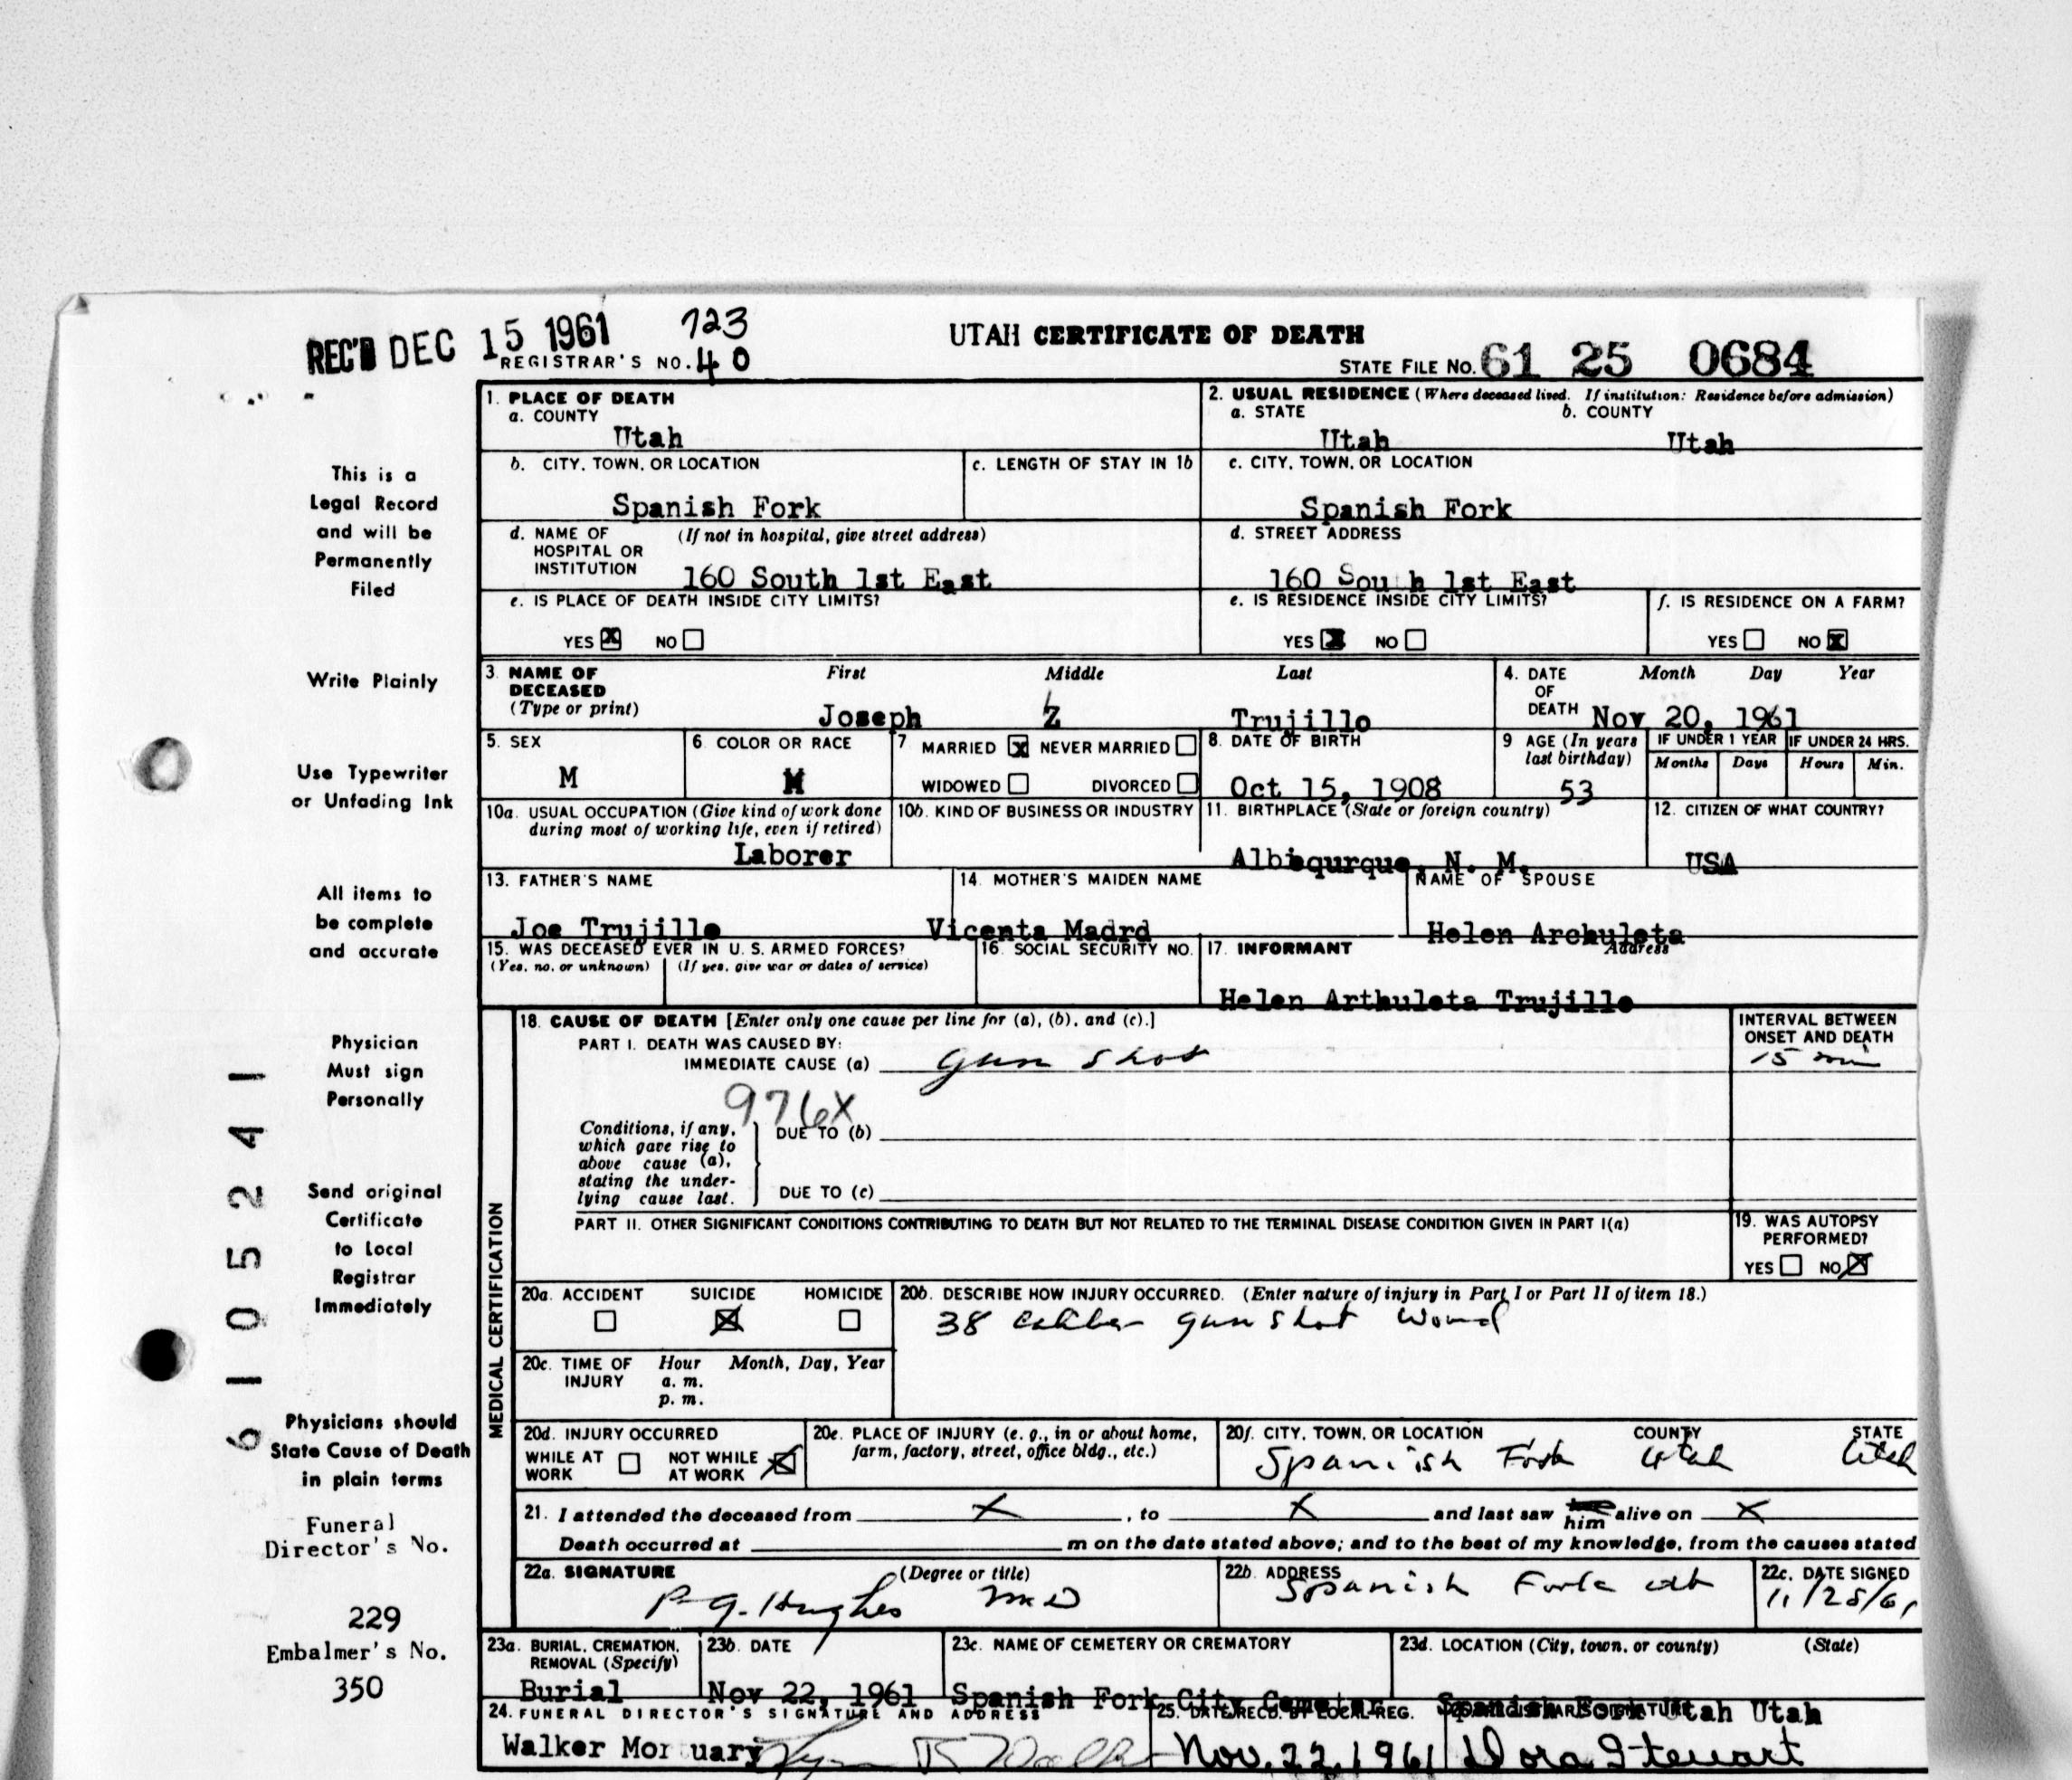 REC'D DEC 15 1961 723
REGISTRAR'S NO. 40
UTAH CERTIFICATE OF DEATH
STATE FILE NO. 61 25 0684
1. PLACE OF DEATH
a. COUNTY
Utah
2. USUAL RESIDENCE (Where deceased lived. If institution: Residence before admission)
a. STATE b. COUNTY
Utah Utah
b. CITY, TOWN, OR LOCATION
Spanish Fork
c. LENGTH OF STAY IN 1b
c. CITY, TOWN, OR LOCATION
Spanish Fork
d. NAME OF (If not in hospital, give street address)
HOSPITAL OR
INSTITUTION 160 South 1st East
d. STREET ADDRESS
160 Sou h 1st East
e. IS PLACE OF DEATH INSIDE CITY LIMITS?
YES X NO
e. IS RESIDENCE INSIDE CITY LIMITS?
YES X NO
f. IS RESIDENCE ON A FARM?
YES NO X
3. NAME OF DECEASED (Type or print)
First Middle Last
Joseph Z Trujillo
4. DATE OF DEATH
Month Day Year
Nov 20, 1961
5. SEX
M
6. COLOR OR RACE
7. MARRIED X NEVER MARRIED
WIDOWED DIVORCED
8. DATE OF BIRTH
Oct 15, 1908
9 AGE (In years last birthday)
53
IF UNDER 1 YEAR IF UNDER 24 HRS.
Months Days Hours Min.
10a. USUAL OCCUPATION (Give kind of work done
during most of working life, even if retired)
Laborer
10b. KIND OF BUSINESS OR INDUSTRY
11. BIRTHPLACE (State or foreign country)
Albequrque, N. M.
12. CITIZEN OF WHAT COUNTRY?
USA
13. FATHER'S NAME
Joe Trujillo
14. MOTHER'S MAIDEN NAME
Vicenta Madrd
NAME OF SPOUSE
Helen Archuleta
15. WAS DECEASED EVER IN U. S. ARMED FORCES?
(Yes, no, or unknown) (If yes, give war or dates of service)
16. SOCIAL SECURITY NO.
17. INFORMANT Address
Helen Arthuleta Trujillo
MEDICAL CERTIFICATION
18. CAUSE OF DEATH [Enter only one cause per line for (a), (b), and (c).]
PART I. DEATH WAS CAUSED BY:
IMMEDIATE CAUSE (a) gun shot
INTERVAL BETWEEN
ONSET AND DEATH
15 min
976X
Conditions, if any,
which gave rise to
above cause (a),
stating the under-
lying cause last.
DUE TO (b)
DUE TO (c)
PART II. OTHER SIGNIFICANT CONDITIONS CONTRIBUTING TO DEATH BUT NOT RELATED TO THE TERMINAL DISEASE CONDITION GIVEN IN PART I(a)
19. WAS AUTOPSY
PERFORMED?
YES NO X
20a. ACCIDENT SUICIDE HOMICIDE
X
20b. DESCRIBE HOW INJURY OCCURRED. (Enter nature of injury in Part I or Part II of item 18.)
38 caliber gun shot wound
20c. TIME OF INJURY
Hour Month, Day, Year
a. m.
p. m.
20d. INJURY OCCURRED
WHILE AT WORK NOT WHILE AT WORK X
20e. PLACE OF INJURY (e. g., in or about home,
farm, factory, street, office bldg., etc.)
20f. CITY, TOWN, OR LOCATION COUNTY STATE
Spanish Fork Utah Utah
21. I attended the deceased from X , to X and last saw him alive on X
Death occurred at m on the date stated above; and to the best of my knowledge, from the causes stated
22a. SIGNATURE (Degree or title)
P. G. Hughes MD
22b. ADDRESS
Spanish Fork Ut
22c. DATE SIGNED
11/25/61
23a. BURIAL, CREMATION,
REMOVAL (Specify)
Burial
23b. DATE
Nov 22, 1961
23c. NAME OF CEMETERY OR CREMATORY
Spanish Fork City Cemeter
23d. LOCATION (City, town, or county) (State)
Spanish Fork Utah Utah
24. FUNERAL DIRECTOR'S SIGNATURE AND ADDRESS
Walker Mor uary
25. DATE REC'D. BY LOCAL REG.
Nov. 22, 1961
Dora Stewart
This is a
Legal Record
and will be
Permanently
Filed
Write Plainly
Use Typewriter
or Unfading Ink
All items to
be complete
and accurate
Physician
Must sign
Personally
Send original
Certificate
to Local
Registrar
Immediately
Physicians should
State Cause of Death
in plain terms
Funeral
Director's No.
229
Embalmer's No.
350
6 1 0 5 2 4 1